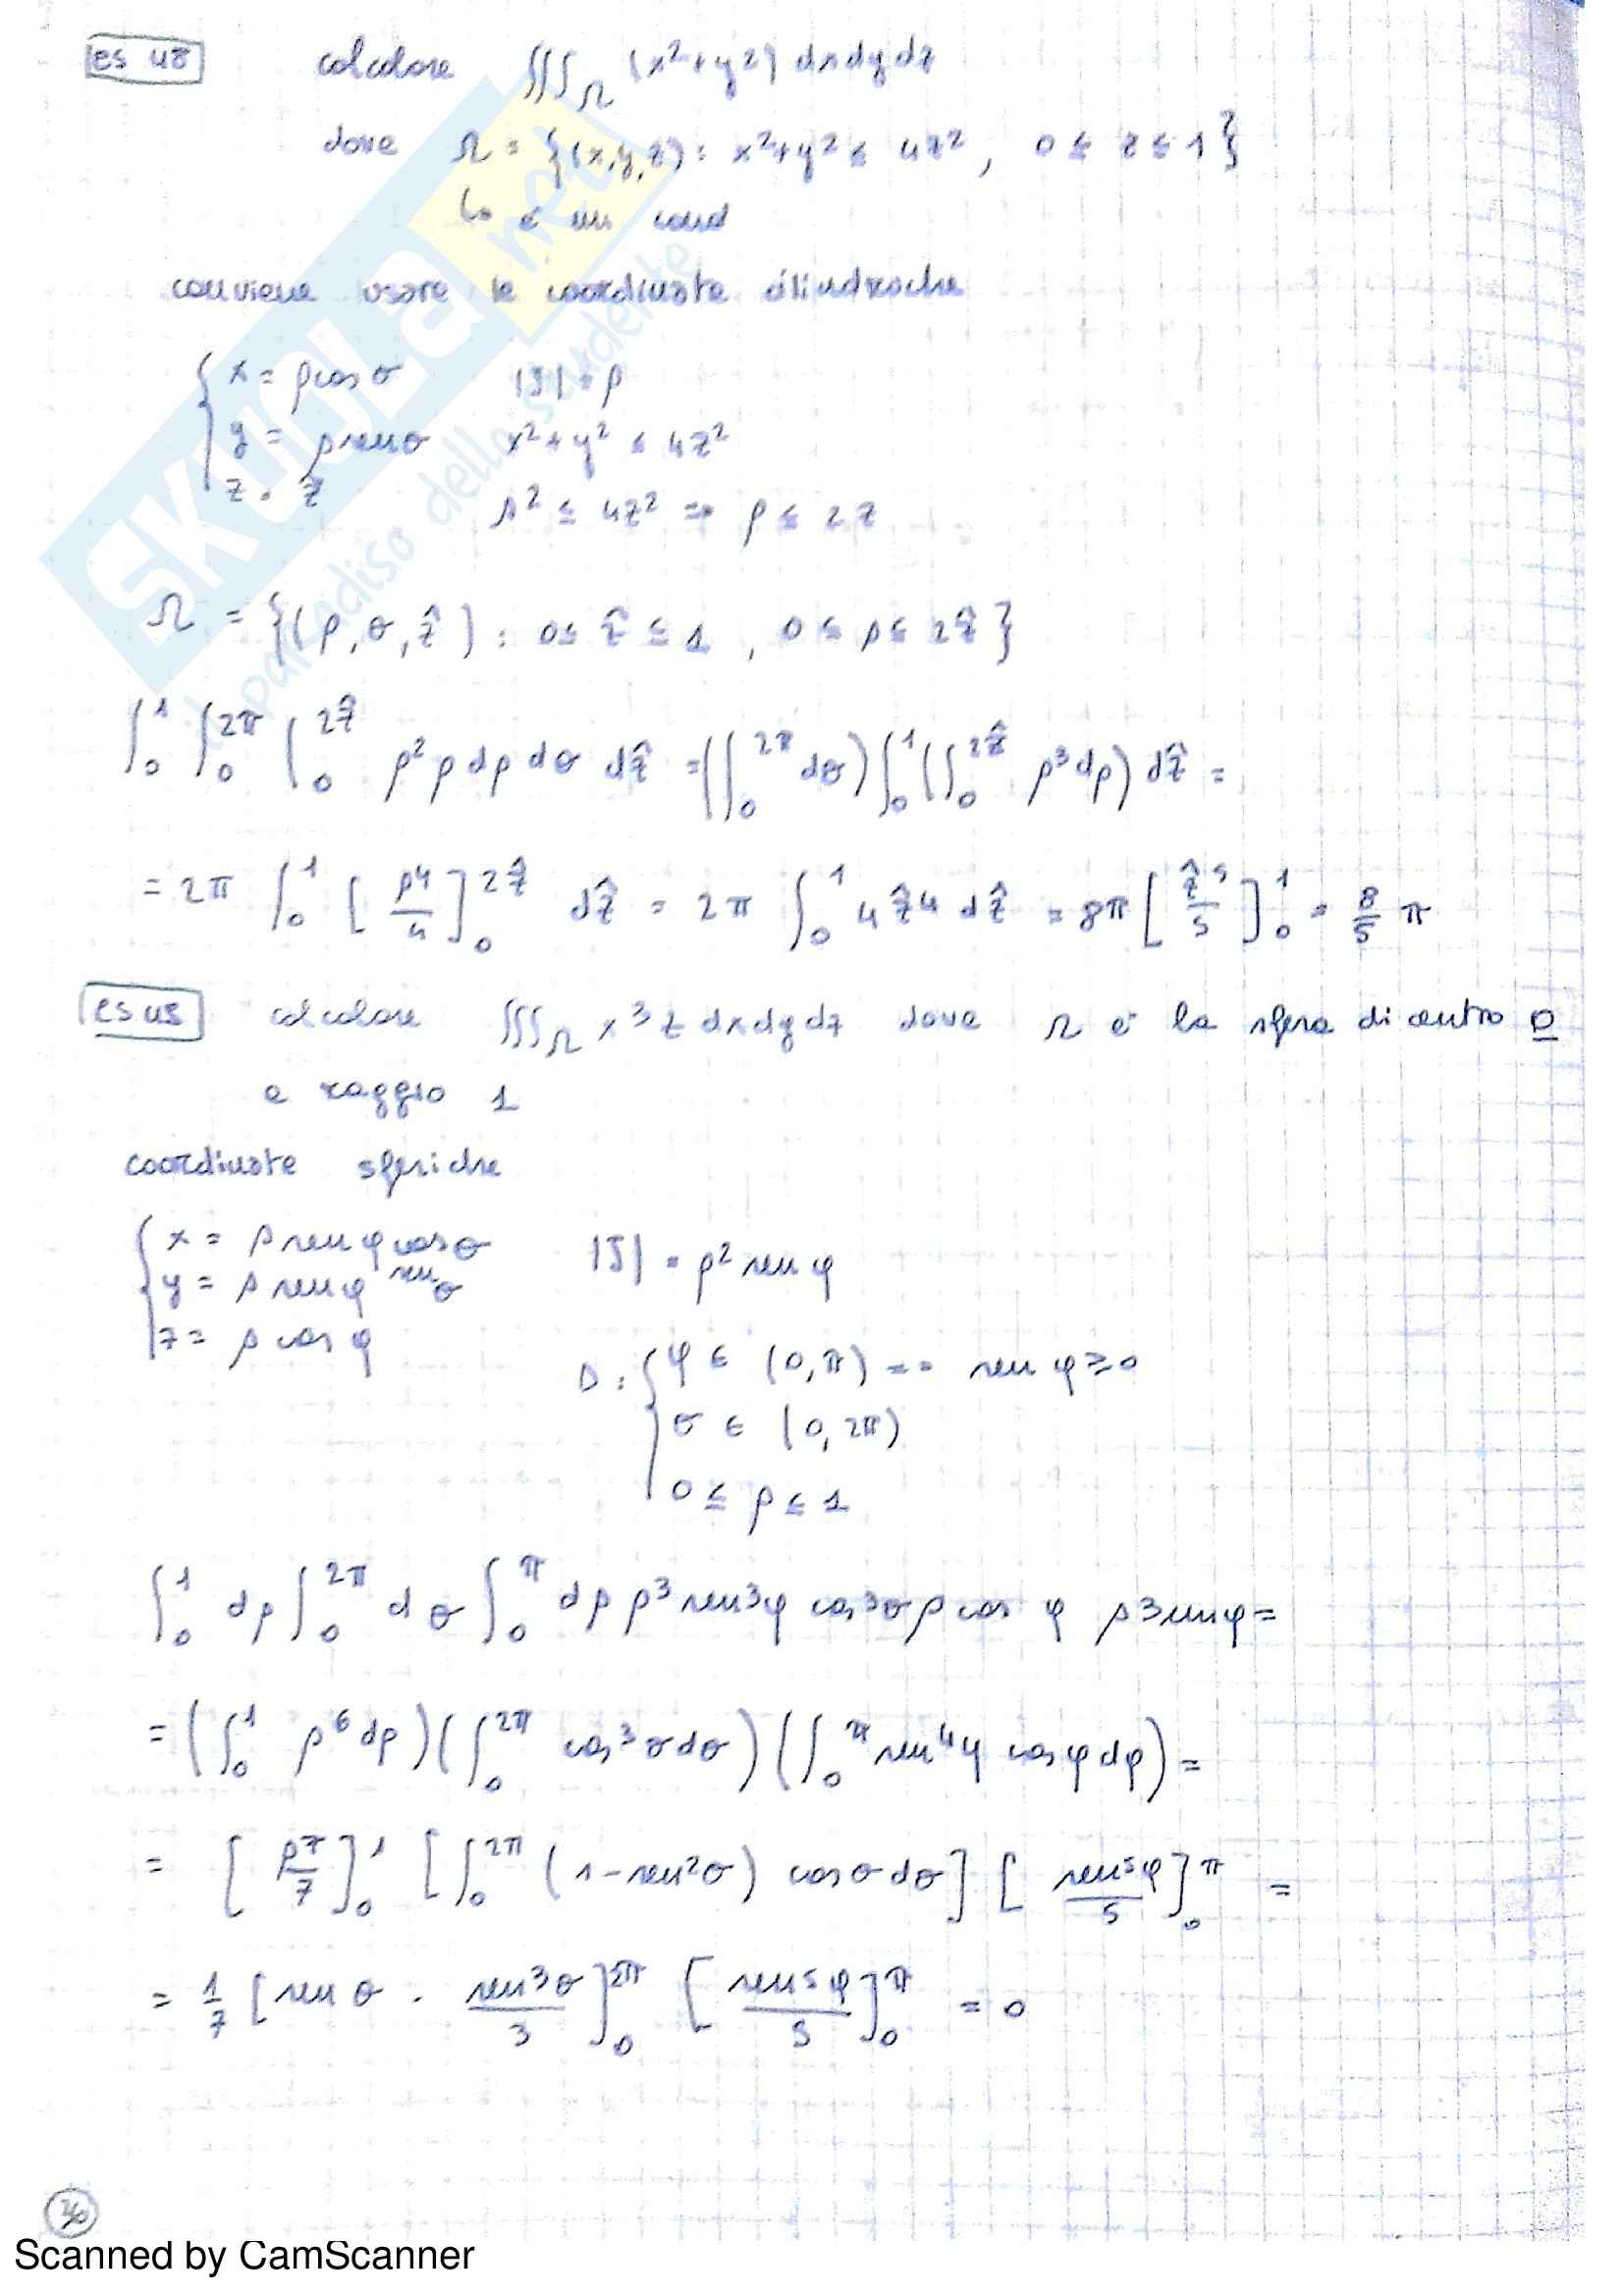 es 48 calcolare ∭_Ω (x²+y²) dxdydz
dove Ω = {(x,y,z): x²+y² ≤ 4z², 0 ≤ z ≤ 1}
↳ è un cono
conviene usare le coordinate cilindriche
x = ρcosθ |J| = ρ
y = ρsenθ x²+y² ≤ 4z²
z = ẑ
ρ² ≤ 4z² => ρ ≤ 2z
Ω = {(ρ,θ,ẑ): 0 ≤ ẑ ≤ 1, 0 ≤ ρ ≤ 2ẑ}
∫₀¹ ∫₀^2π ∫₀^2ẑ ρ²ρ dρ dθ dẑ = (∫₀^2π dθ) ∫₀¹ (∫₀^2ẑ ρ³dρ) dẑ =
= 2π ∫₀¹ [ρ⁴/4]₀^2ẑ dẑ = 2π ∫₀¹ 4ẑ⁴ dẑ = 8π [ẑ⁵/5]₀¹ = 8/5 π
es 49 calcolare ∭_Ω x³z dxdydz dove Ω è la sfera di centro 0
e raggio 1
coordinate sferiche
x = ρ senφ cosθ |J| = ρ² senφ
y = ρ senφ senθ
z = ρ cosφ
D: φ ∈ (0,π) => senφ ≥ 0
θ ∈ (0,2π)
0 ≤ ρ ≤ 1
∫₀¹ dρ ∫₀^2π dθ ∫₀^π dρ ρ³ sen³φ cos³θ ρ cosφ ρ² senφ =
= (∫₀¹ ρ⁶ dρ) (∫₀^2π cos³θ dθ) (∫₀^π sen⁴φ cosφ dφ) =
= [ρ⁷/7]₀¹ [∫₀^2π (1-sen²θ) cosθ dθ] [sen⁵φ/5]₀^π =
= 1/7 [senθ - sen³θ/3]₀^2π [sen⁵φ/5]₀^π = 0
Scanned by CamScanner
SKUOLA.net
il paradiso dello studente